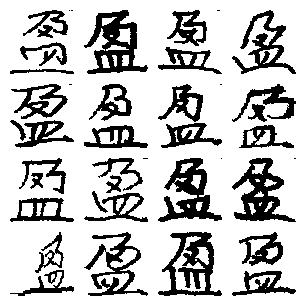 盈盈盈盈
盈盈盈盈
盈盈盈盈
盈盈盈盈